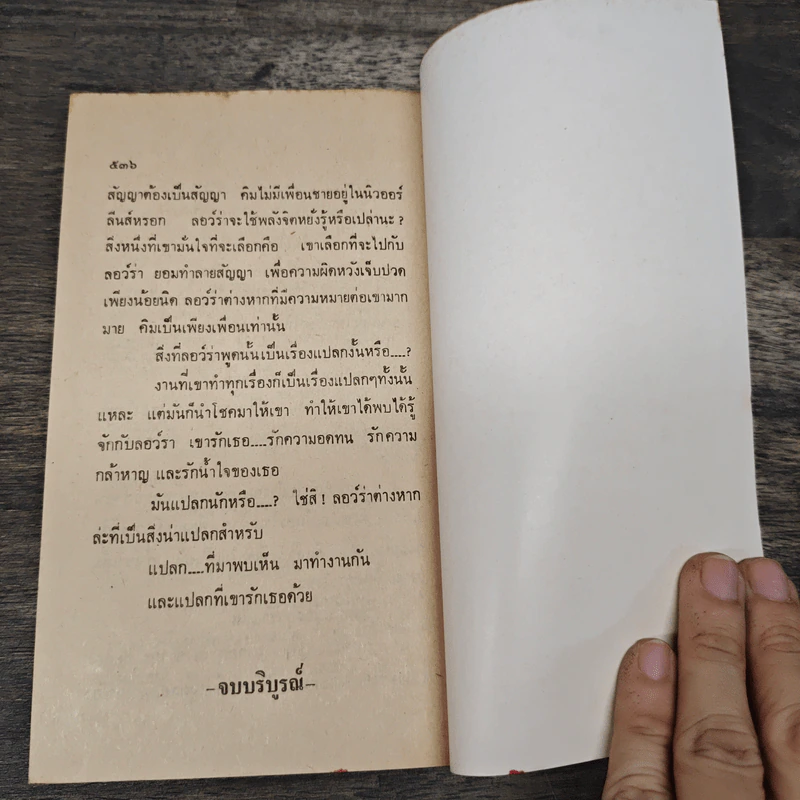 ๕๓๖
สัญญาต้องเป็นสัญญา คิมไม่มีเพื่อนชายอยู่ในนิวออร์
ลีนส์หรอก ลอว์ร่าจะใช้พลังจิตหยั่งรู้หรือเปล่านะ?
สิ่งหนึ่งที่เขามั่นใจที่จะเลือกคือ เขาเลือกที่จะไปกับ
ลอว์ร่า ยอมทำลายสัญญา เพื่อความผิดหวังเจ็บปวด
เพียงน้อยนิด ลอว์ร่าต่างหากที่มีความหมายต่อเขามาก
มาย คิมเป็นเพียงเพื่อนเท่านั้น
สิ่งที่ลอว์ร่าพูดนั้นเป็นเรื่องแปลกงั้นหรือ....?
งานที่เขาทำทุกเรื่องก็เป็นเรื่องแปลกๆทั้งนั้น
แหละ แต่มันก็นำโชคมาให้เขา ทำให้เขาได้พบได้รู้
จักกับลอว์รา เขารักเธอ....รักความอดทน รักความ
กล้าหาญ และรักน้ำใจของเธอ
มันแปลกนักหรือ....? ใช่สิ! ลอว์ร่าต่างหาก
ล่ะที่เป็นสิ่งน่าแปลกสำหรับ
แปลก....ที่มาพบเห็น มาทำงานกัน
และแปลกที่เขารักเธอด้วย
–จบบริบูรณ์–